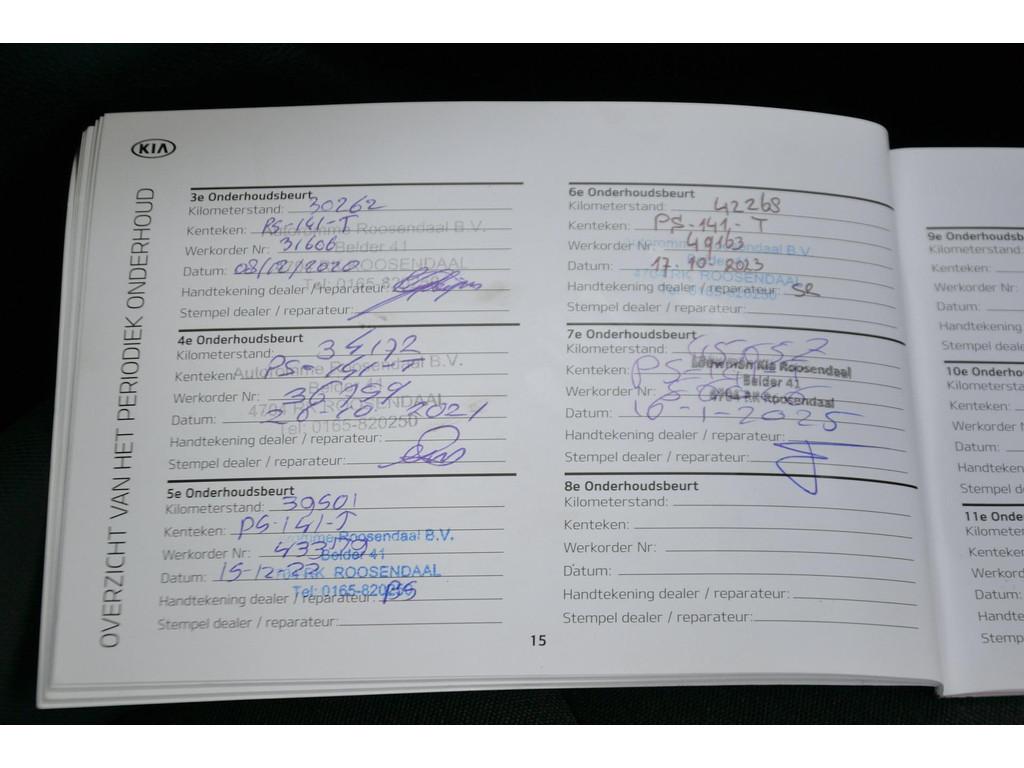 KIA
OVERZICHT VAN HET PERIODIEK ONDERHOUD
3e Onderhoudsbeurt
Kilometerstand: 30262
Kenteken: PS-141-T
Werkorder Nr: 31606
Datum: 08/12/2020
Handtekening dealer / reparateur:
Stempel dealer / reparateur:
Autoromme Roosendaal B.V.
Belder 41
4704 RK ROOSENDAAL
Tel: 0165-820250
4e Onderhoudsbeurt
Kilometerstand: 34172
Kenteken: PS-141-T
Werkorder Nr:
Datum: 28-10-2021
Handtekening dealer / reparateur:
Stempel dealer / reparateur:
Autoromme Roosendaal B.V.
Belder 41
4704 RK ROOSENDAAL
Tel: 0165-820250
5e Onderhoudsbeurt
Kilometerstand: 39501
Kenteken: PS-141-T
Werkorder Nr: 43379
Datum: 15-12-22
Handtekening dealer / reparateur:
Stempel dealer / reparateur:
Roosendaal B.V.
Belder 41
4704 RK ROOSENDAAL
Tel: 0165-820250
6e Onderhoudsbeurt
Kilometerstand: 42268
Kenteken: PS-141-T
Werkorder Nr: 49163
Datum: 17-10-2023
Handtekening dealer / reparateur: SR
Stempel dealer / reparateur:
Roosendaal B.V.
4704 RK ROOSENDAAL
Tel: 0165-820250
7e Onderhoudsbeurt
Kilometerstand: 45657
Kenteken: PS-141-T
Werkorder Nr:
Datum: 16-1-2025
Handtekening dealer / reparateur:
Stempel dealer / reparateur:
Louwman Kia Roosendaal
Belder 41
4704 RK Roosendaal
8e Onderhoudsbeurt
Kilometerstand:
Kenteken:
Werkorder Nr:
Datum:
Handtekening dealer / reparateur:
Stempel dealer / reparateur:
15
9e Onderhoudsb
Kilometerstand:
Kenteken:
Werkorder Nr:
Datum:
Handtekening
Stempel dealer
10e Onderhoud
Kilometerstan
Kenteken:
Werkorder N
Datum:
Handtekenin
Stempel deal
11e Onder
Kilometer
Kenteken
Werkord
Datum:
Handte
Stemp